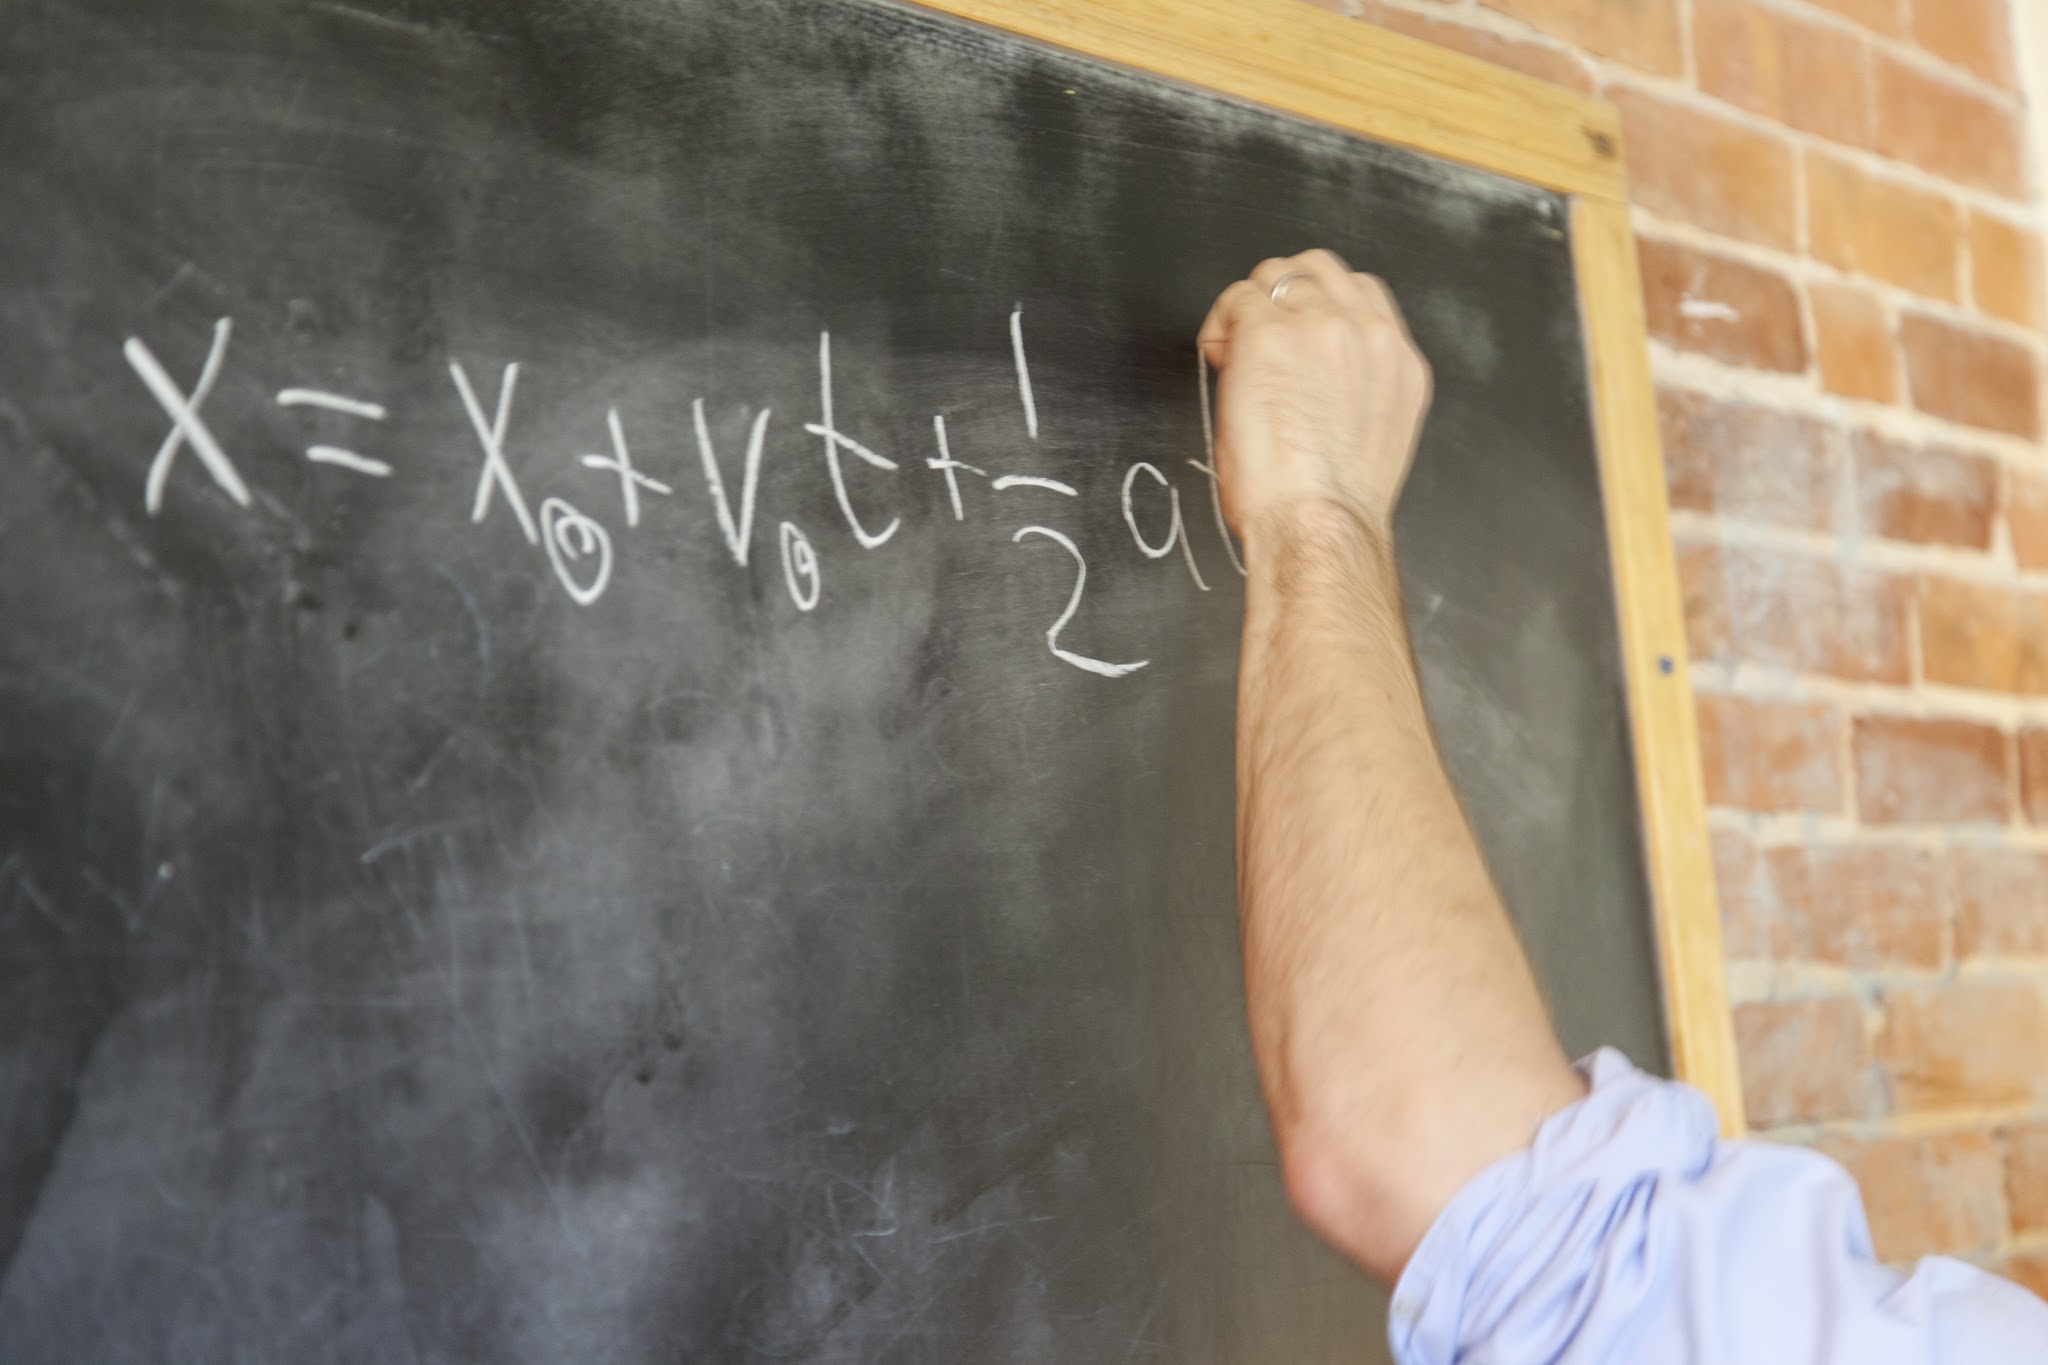 x = x₀ + v₀t + 1/2 at